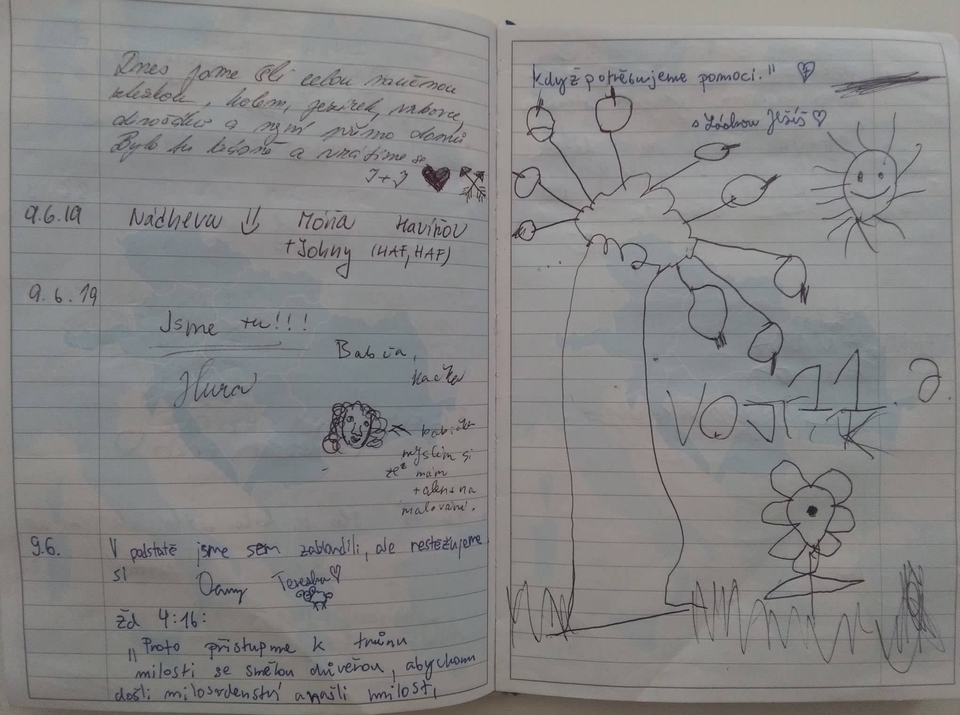 Dnes jsme šli celou naučnou
stezkou, kolem jezírek,
a nyní přímo domů
Bylo tu krásně a vrátíme se
J+J
9.6.19 Nádhera Móňa Havířov
+Johny (HAF, HAF)
9.6.19
Jsme tu!!!
Hurá
Babča,
Kačka
myslím si
že mám
na
malování.
9.6. V podstatě jsme sem zabloudili, ale nestěžujeme
si
Terezka
Žd 4:16:
„Proto přistupme k trůnu
milosti se smělou důvěrou, abychom
došli milosrdenství a našli milost,
Když potřebujeme pomoci."
s láskou Ježíš
VOJTÍK